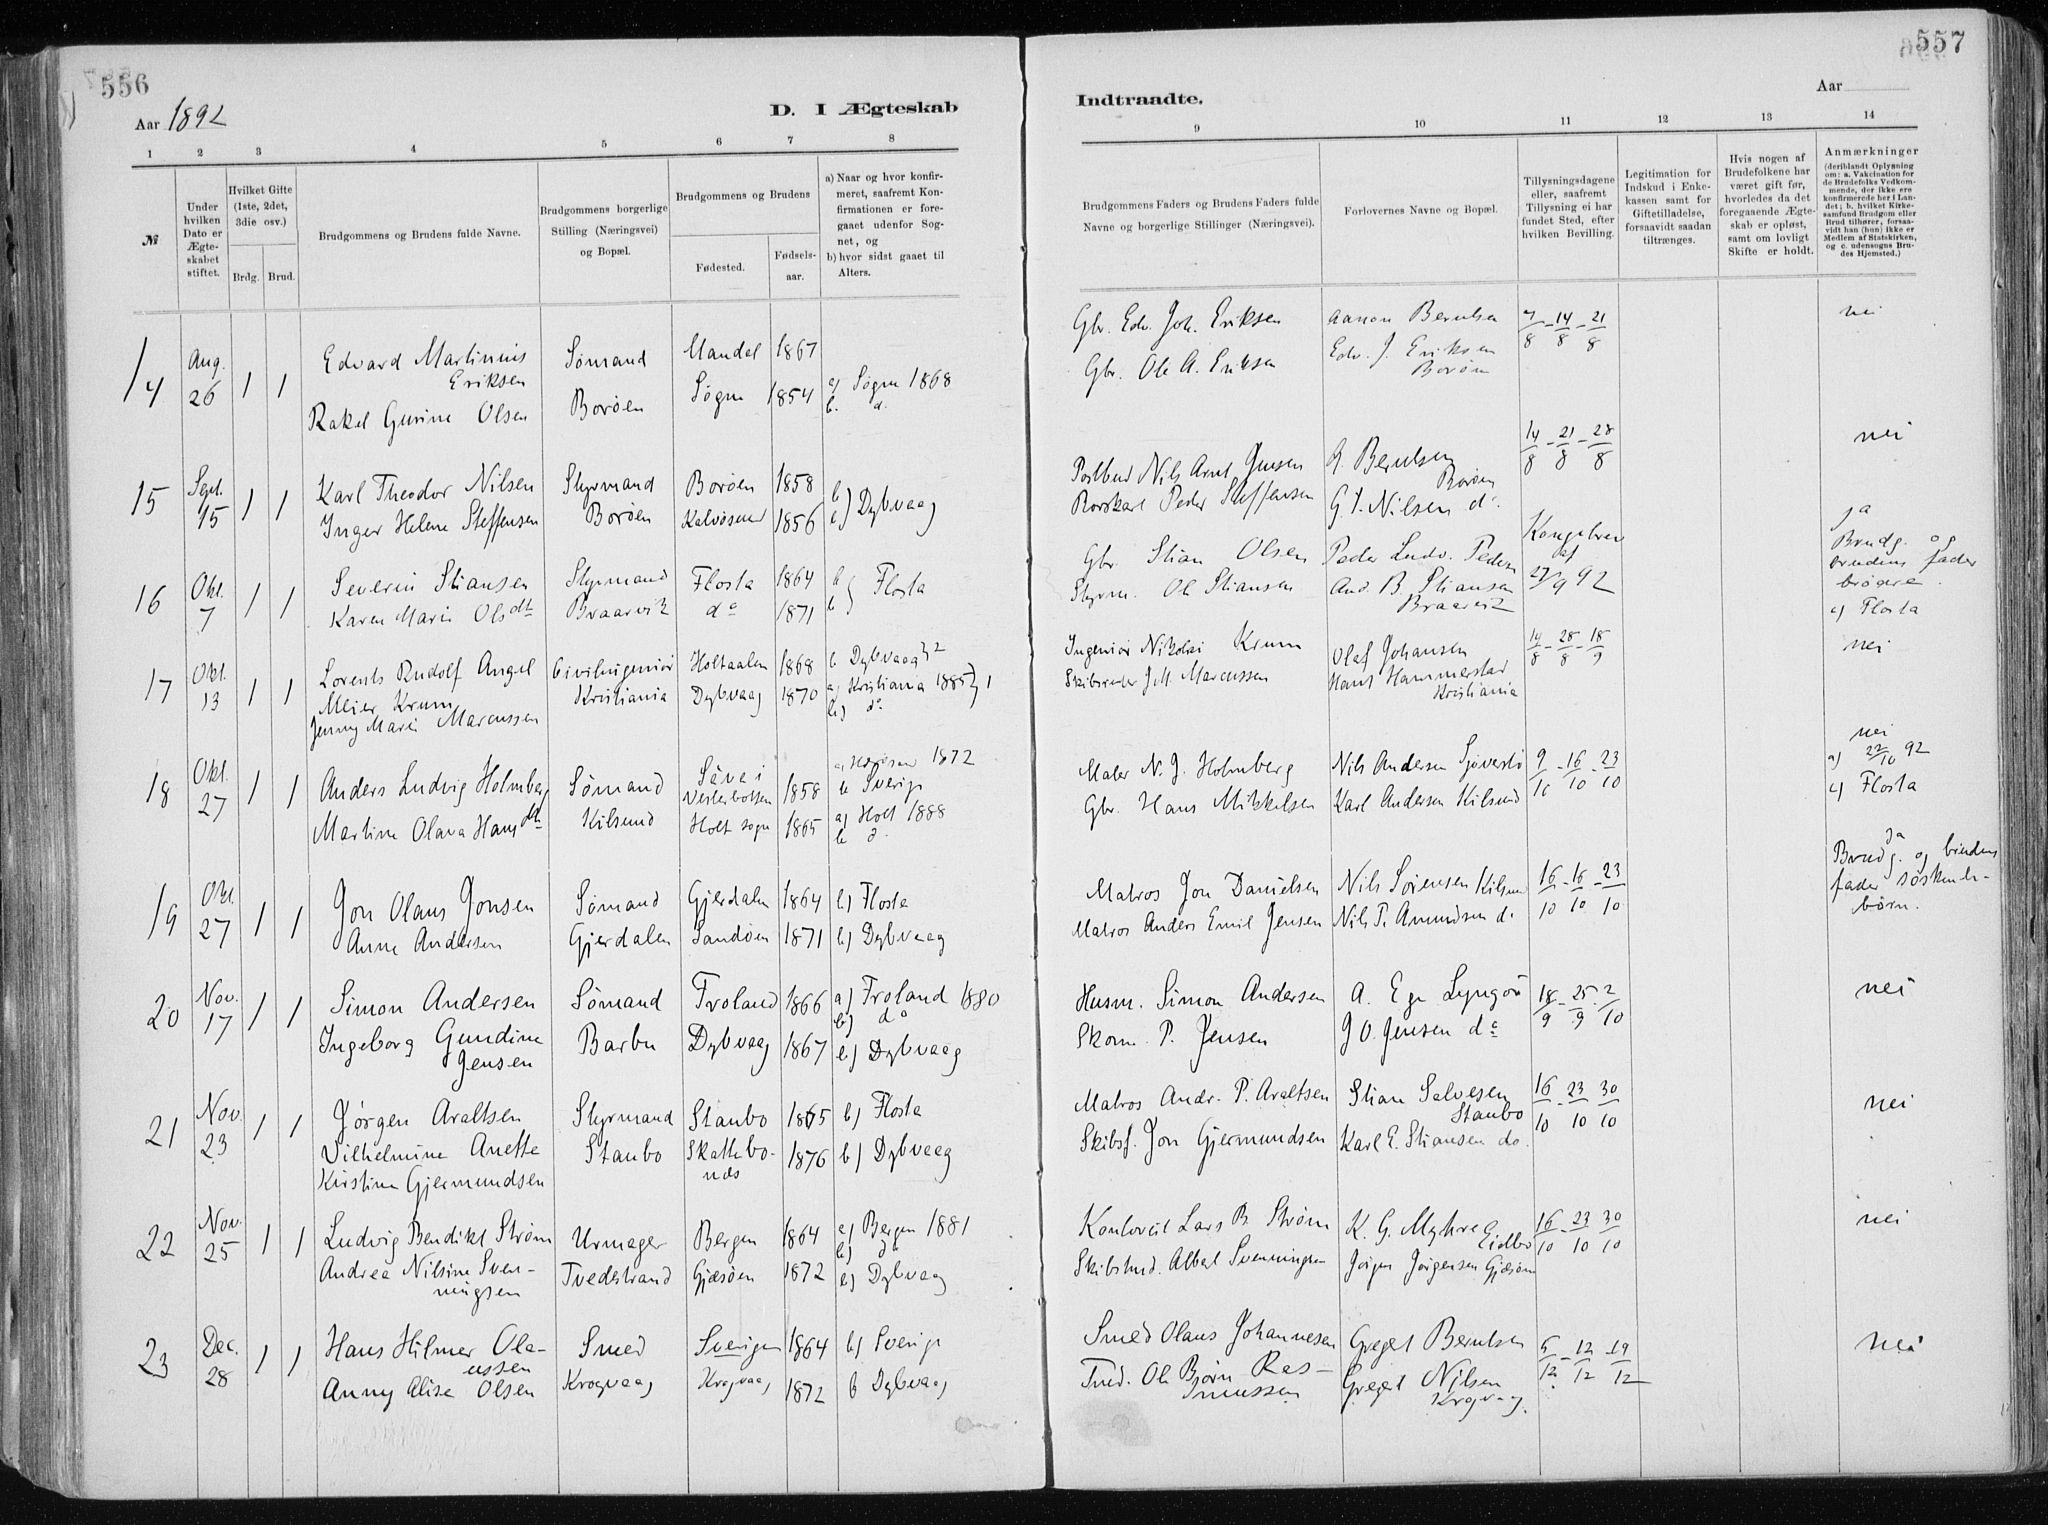 556
Aar 1892
D. I Ægteskab
1 2 3 4 5 6 7 8
№
Under hvilken Dato er Ægteskabet stiftet.
Hvilket Gifte (1ste, 2det, 3die osv.)
Brdg. Brud.
Brudgommens og Brudens fulde Navne.
Brudgommens borgerlige Stilling (Næringsvei) og Bopæl.
Brudgommens og Brudens
Fødested.
Fødselsaar.
a) Naar og hvor konfirmeret, saafremt Konfirmationen er foregaaet udenfor Sognet, og
b) hvor sidst gaaet til Alters.
14 Aug. 26 1 1 Edvard Martinius Eriksen Sømand Mandal 1867
Rakel Gurine Olsen Borøen Søgne 1854 a) Søgne 1868 b. d.
15 Sept. 15 1 1 Karl Theodor Nilsen Styrmand Borøen 1858
Inger Helene Steffensen Borøen Kalvøsund 1856 b) Dybvaag
16 Okt. 7 1 1 Severin Stiansen Styrmand Flosta 1864 b
Karen Marie Olsdt Braarvik do 1871 b Flosta
17 Okt. 13 1 1 Lorents Rudolf Angel Meier Krum Civilingeniør Holtaalen 1868 b Dybvaag 2
Jenny Marie Marcussen Kristiania Dybvaag 1870 a) Kristiania 1885 1 b) do
18 Okt. 27 1 1 Anders Ludvig Holmberg Sømand Vesterbotten 1858 1872 b Sverige
Martine Olava Hansdt Kilsund Holt sogn 1865 a) Holt 1888 b d.
19 Okt. 27 1 1 Jon Olaus Jonsen Sømand Gjerdalen 1864 b) Flosta
Anne Andersen Gjerdalen Sandøen 1871 b) Dybvaag
20 Nov. 17 1 1 Simon Andersen Sømand Froland 1866 a) Froland 1880 b) do
Ingeborg Gundine Jensen Barbu Dybvaag 1867 b) Dybvaag
21 Nov. 23 1 1 Jørgen Araltsen Styrmand Staubo 1865 b) Flosta
Vilhelmine Anette Kirstine Gjermundsen Staubo Skattebonds 1876 b) Dybvaag
22 Nov. 25 1 1 Ludvig Bendikt Strøm Urmager Bergen 1864 a) Bergen 1881 b) do
Andrea Nilsine Svenningsen Tvedestrand Gjæsøen 1872 b) Dybvaag
23 Dec. 28 1 1 Hans Hilmer Olaussen Smed Sverige 1864 b) Sverige
Anny Alise Olsen Krogvaag Krogvaag 1872 b Dybvaag
557
Indtraadte.
Aar
9 10 11 12 13 14
Brudgommens Faders og Brudens Faders fulde Navne og borgerlige Stillinger (Næringsvei).
Forlovernes Navne og Bopæl.
Tillysningsdagene eller, saafremt Tillysning ei har fundet Sted, efter hvilken Bevilling.
Legitimation for Indskud i Enkekassen samt for Giftetilladelse, forsaavidt saadan tiltrænges.
Hvis nogen af Brudefolkene har været gift før, hvorledes da det foregaaende Ægteskab er opløst, samt om lovligt Skifte er holdt.
Anmærkninger (deriblandt Oplysning om: a. Vakcination for de Brudefolks Vedkommende, der ikke ere konfirmerede her i Landet; b. hvilket Kirkesamfund Brudgom eller Brud tilhører, forsaavidt han (hun) ikke er Medlem af Statskirken, og c. udensogns Brudes Hjemsted.)
Gbr. Edv. Joh. Eriksen Aanon Berntsen 7/8 - 14/8 - 21/8 nei
Gbr. Ole A. Eriksen Edv. J. Eriksen Borøen
Postbud Nils Arnt Jensen Berntsen Borøen 14/8 - 21/8 - 28/8 nei
Peder Steffensen G. T. Nilsen do.
Gbr. Stian Olsen Peder Ludv. Pedersen Kongebrev af 27/9 92 ja Brudg. og brudens fader brødre.
Styrm. Ole Stiansen And. B. Stiansen Braarvik c) Flosta
Ingeniør Nikolai Krum Olaf Johansen 14/8 - 28/8 - 18/9 nei
Skibsreder J. M. Marcussen Hans Hammerstad Kristiania
Maler N. J. Holmberg Nils Andersen 9/10 - 16/10 - 23/10 nei a) 22/10 92
Gbr. Hans Mikkelsen Karl Andersen Kilsund c) Flosta
Matros Jon Danielsen Nils Sørensen Kilsund 16/10 - 16/10 - 23/10 Ja Brudg. og brudens fader søskendebørn.
Matros Anders Emil Jensen Nils P. Amundsen do
Husm. Simon Andersen A. Ege Lyngør 18/9 - 25/9 - 2/10 nei
Skom. P. Jensen J O. Jensen do
Matros Andr. P. Araltsen Stian Salvesen Staubo 16/10 - 23/10 30/10 nei
Skibsf. Jon Gjermundsen Karl E. Stiansen do.
Lars B. Strøm K. G. Myhre Eidbo 16/10 - 23/10 30/10 nei
Albert Svenningsen Jørgen Jørgensen Gjæsøen
Smed Olaus Johannesen Greget Berntsen 5/12 - 12/12 - 19/12 nei
Ole Bjørn Rasmussen Greget Nilsen Krogvaag.